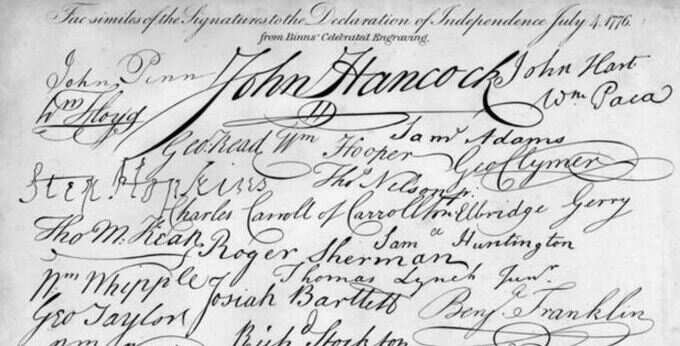 Fac similes of the Signatures to the Declaration of Independence July 4. 1776.
from Binns' Celebrated Engraving.
John Penn John Hancock John Hart
Wm Floyd Wm Paca
Geo Read Wm Hooper Saml Adams
Geo Clymer
Step. Hopkins Thos Nelson jr.
Charles Carroll of Carrollton Elbridge Gerry
Tho M:Kean Roger Sherman Saml Huntington
Wm Whipple Josiah Bartlett Thomas Lynch Junr.
Geo Taylor Benj. Franklin
Richd Stockton